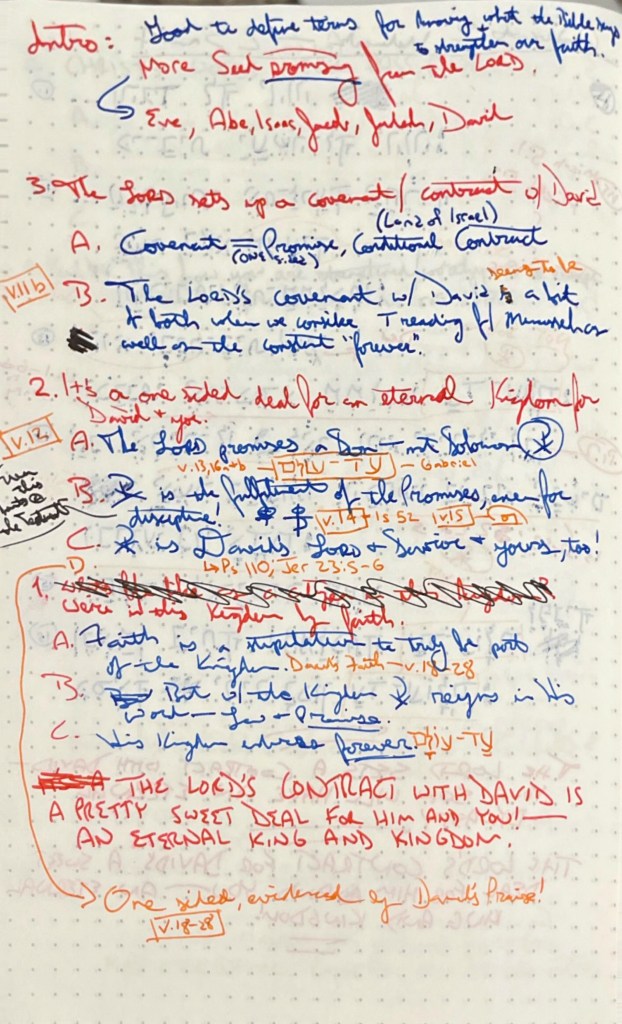 Intro: Good to define terms for knowing what the Bible says
to strengthen our faith.
More Seed promising from the LORD.
Eve, Abe, Isaac, Jacob, Judah, David
3. The LORD sets up a covenant/contract w/ David
(Land of Israel)
A. Covenant = Promise, Conditional Contract
(one sided)
seems to be
v.11b
B. The LORD's covenant w/ David is a bit
of both when we consider reading
well as the constant "forever".
2. It's a one sided deal for an eternal Kingdom for
David + you.
v.12
A. The LORD promises a Son — not Solomon,
v.13, 16a+b — עוֹלָם - עַד — Gabriel
B. is the fulfillment of the Promises, even for
discipline. v.14 Is 52 v.15
C. is David's Lord + Savior + yours, too!
D ↳ Ps 110; Jer 23:5-6
1.
We're in this Kingdom by faith.
A. Faith is a stipulation to truly be part
of the Kingdom. David's Faith - v.18-28
B. But w/ the Kingdom reigns in His
Word — Law + Promise.
C. His Kingdom forever עוֹלָם - עַד
THE LORD'S CONTRACT WITH DAVID IS
A PRETTY SWEET DEAL FOR HIM AND YOU! —
AN ETERNAL KING AND KINGDOM.
One sided, evidenced by David's Praise!
v.18-28